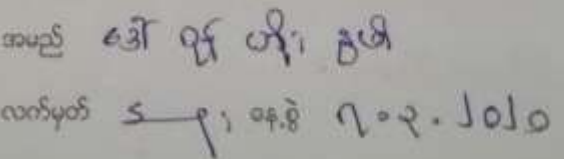 အမည် ဒေါ် ဇွန် ဟိုး နွယ်
လက်မှတ် နေ့စွဲ ၇.၃.၂၀၂၀